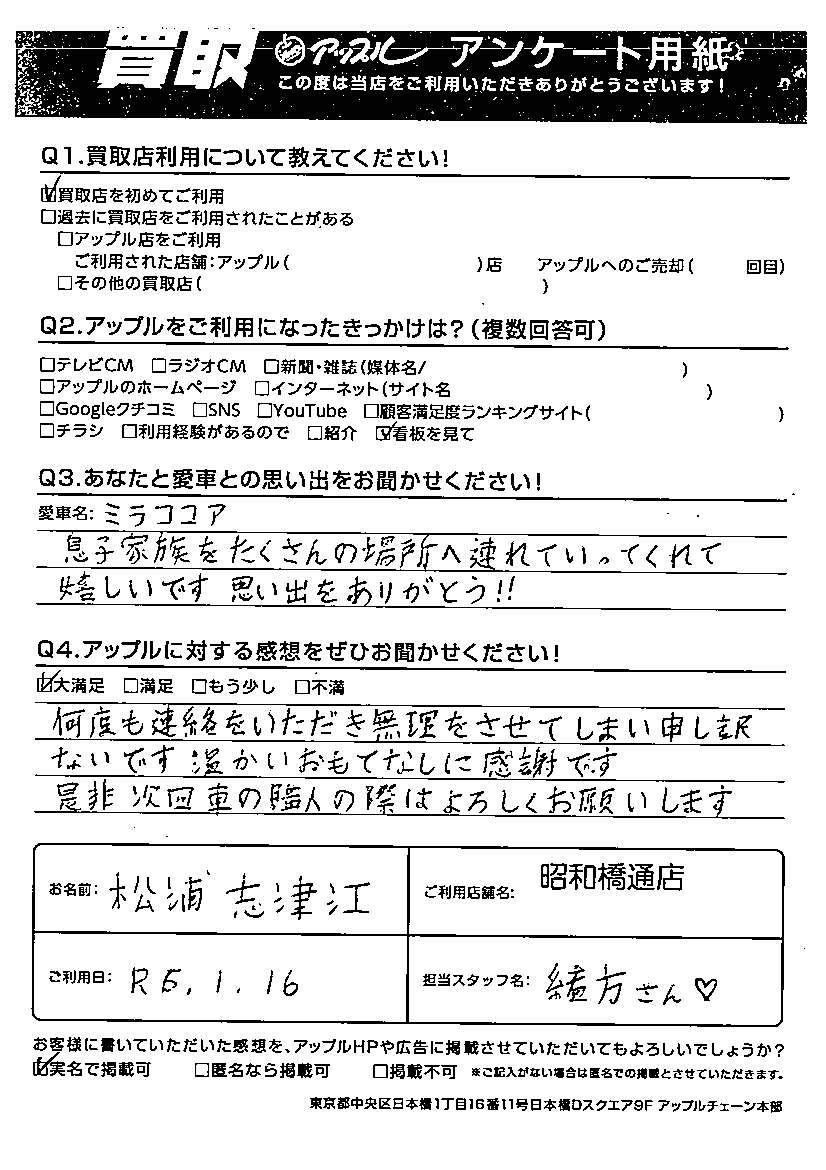 買取 アップル アンケート用紙
この度は当店をご利用いただきありがとうございます!
Q1.買取店利用について教えてください!
☑買取店を初めてご利用
□過去に買取店をご利用されたことがある
□アップル店をご利用
ご利用された店舗:アップル( )店 アップルへのご売却( 回目)
□その他の買取店( )
Q2.アップルをご利用になったきっかけは?(複数回答可)
□テレビCM □ラジオCM □新聞・雑誌(媒体名/ )
□アップルのホームページ □インターネット(サイト名 )
□Googleクチコミ □SNS □YouTube □顧客満足度ランキングサイト( )
□チラシ □利用経験があるので □紹介 ☑看板を見て
Q3.あなたと愛車との思い出をお聞かせください!
愛車名:ミラココア
息子家族をたくさんの場所へ連れていってくれて
嬉しいです 思い出をありがとう!!
Q4.アップルに対する感想をぜひお聞かせください!
☑大満足 □満足 □もう少し □不満
何度も連絡をいただき無理をさせてしまい申し訳
ないです 温かいおもてなしに感謝です
是非次回車の購入の際はよろしくお願いします
お名前: 松浦 志津江 ご利用店舗名: 昭和橋通店
ご利用日: R6.1.16 担当スタッフ名: 緒方さん♡
お客様に書いていただいた感想を、アップルHPや広告に掲載させていただいてもよろしいでしょうか?
☑実名で掲載可 □匿名なら掲載可 □掲載不可 ※ご記入がない場合は匿名での掲載とさせていただきます。
東京都中央区日本橋1丁目16番11号日本橋Dスクエア9F アップルチェーン本部